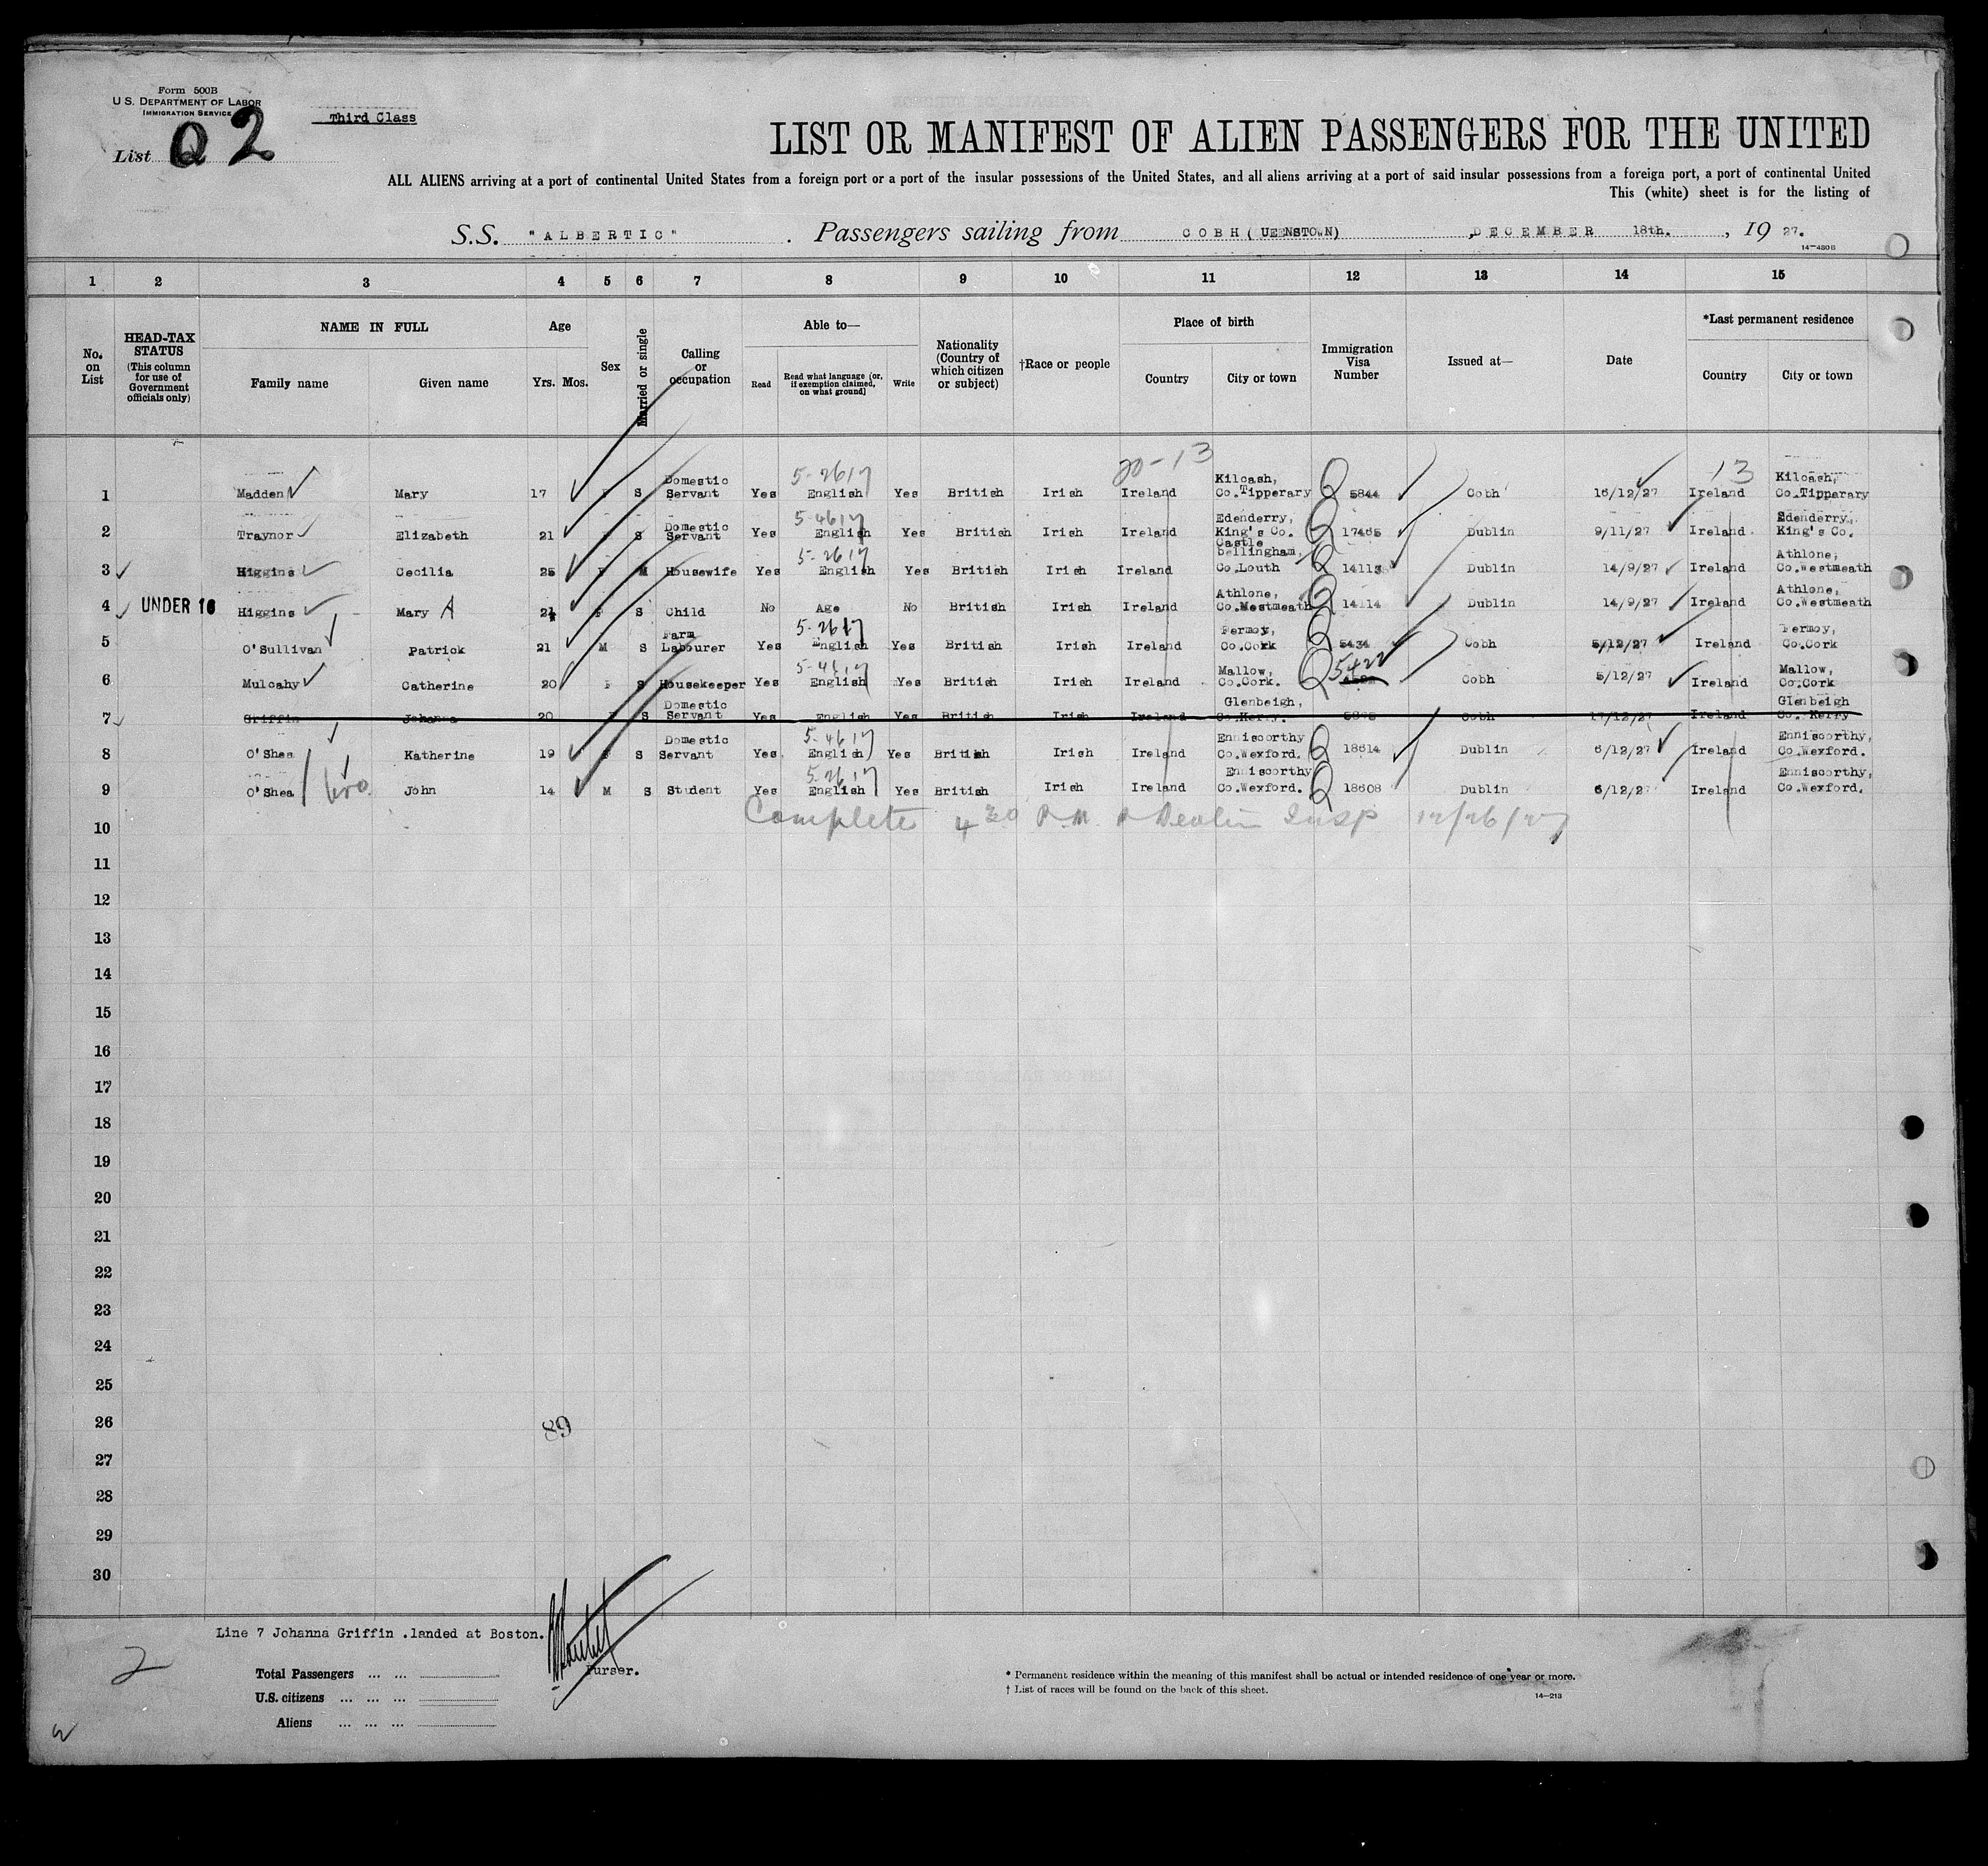 Form 500B
U. S. DEPARTMENT OF LABOR
IMMIGRATION SERVICE
Third Class
List Q 2
LIST OR MANIFEST OF ALIEN PASSENGERS FOR THE UNITED
ALL ALIENS arriving at a port of continental United States from a foreign port or a port of the insular possessions of the United States, and all aliens arriving at a port of said insular possessions from a foreign port, a port of continental United
This (white) sheet is for the listing of
S.S. "ALBERTIC" . Passengers sailing from COBH (UEENSTOWN) ,DECEMBER 18th. , 19 27.
14-480B
1 2 3 4 5 6 7 8 9 10 11 12 13 14 15
No. on List
HEAD-TAX STATUS
(This column for use of Government officials only)
NAME IN FULL
Family name Given name
Age
Yrs. Mos.
Sex
Married or single
Calling or occupation
Able to—
Read
Read what language (or, if exemption claimed, on what ground)
Write
Nationality (Country of which citizen or subject)
†Race or people
Place of birth
Country City or town
Immigration Visa Number
Issued at—
Date
*Last permanent residence
Country City or town
20-13 13
5-2617
1 Madden Mary 17 F S Domestic Servant Yes English Yes British Irish Ireland Kilcash, Co.Tipperary Q 5844 Cobh 16/12/27 Ireland Kilcash, Co.Tipperary
5-4617
2 Traynor Elizabeth 21 F S Domestic Servant Yes English Yes British Irish Ireland Edenderry, King's Co. Q 17465 Dublin 9/11/27 Ireland Edenderry, King's Co.
5-2617
3 Higgins Cecilia 25 F M Housewife Yes English Yes British Irish Ireland Castle bellingham, Co.Louth Q 14113 Dublin 14/9/27 Ireland Athlone, Co.Westmeath
4 UNDER 16 Higgins Mary A F S Child No Age No British Irish Ireland Athlone, Co.Westmeath Q 14114 Dublin 14/9/27 Ireland Athlone, Co.Westmeath
5-2617
5 O'Sullivan Patrick 21 M S Farm Labourer Yes English Yes British Irish Ireland Fermoy, Co.Cork Q 5434 Cobh 5/12/27 Ireland Fermoy, Co.Cork
5-4617
6 Mulcahy Catherine 20 F S Housekeeper Yes English Yes British Irish Ireland Mallow, Co.Cork. Q 5422 Cobh 5/12/27 Ireland Mallow, Co.Cork
7 Griffin Johanna 20 F S Domestic Servant Yes English Yes British Irish Ireland Glenbeigh, Co.Kerry. Cobh 17/12/27 Ireland Glenbeigh Co. Kerry
5-4617
8 O'Shea Katherine 19 F S Domestic Servant Yes English Yes British Irish Ireland Enniscorthy Co.Wexford. Q 18614 Dublin 6/12/27 Ireland Enniscorthy, Co.Wexford.
5-2617
9 O'Shea John 14 M S Student Yes English Yes British Irish Ireland Enniscorthy Co.Wexford. Q 18608 Dublin 6/12/27 Ireland Enniscorthy, Co.Wexford.
10 Complete 4 30 P.M. Devlin Insp 12/26/27
11
12
13
14
15
16
17
18
19
20
21
22
23
24
25
26
89
27
28
29
30
Line 7 Johanna Griffin .landed at Boston.
Purser.
2
Total Passengers ... ...
U.S. citizens ... ... ...
Aliens ... ... ...
* Permanent residence within the meaning of this manifest shall be actual or intended residence of one year or more.
† List of races will be found on the back of this sheet.
14-213